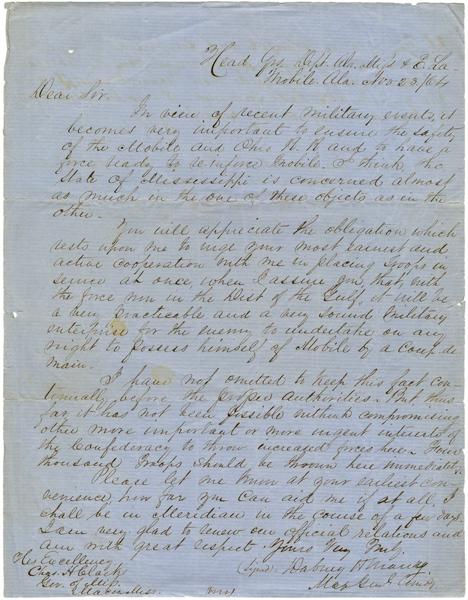 Head Qrs Dept. Ala. Miss & E. La.
Mobile Ala. Nov 23/64
Dear Sir.
In view of recent military events, it
becomes very important to ensure the safety
of the Mobile and Ohio R. R and to have a
force ready to reinforce Mobile. I think the
State of Mississippi is concerned almost
as much in the one of these objects as in the
other.
You will appreciate the obligation which
rests upon me to urge your most earnest and
active cooperation with me in placing troops in
service at once, when I assure you, that, with
the force now in the Dist of the Gulf, it will be
a very practicable and a very sound military
enterprise for the enemy to undertake on any
night to possess himself of Mobile by a coup de
main.
I have not omitted to keep this fact con-
tinually before the proper authorities. But thus
far, it has not been possible without compromising
other more important or more urgent interests of
the Confederacy to throw increased forces here. Four
thousand troops should be thrown here immediately.
Please let me know at your earliest con-
venience, how far you can aid me if at all. I
shall be in Meridian in the course of a few days.
I am very glad to renew our official relations and
am with great respect Yours Very Truly.
His Excellency
(Signed) Dabney H Maury
Chas. H Clark
Maj Genl Comdg
Gov. of Miss.
Macon Miss.